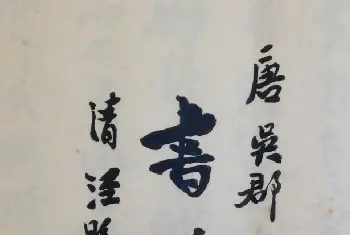 唐吳郡
書
清涇